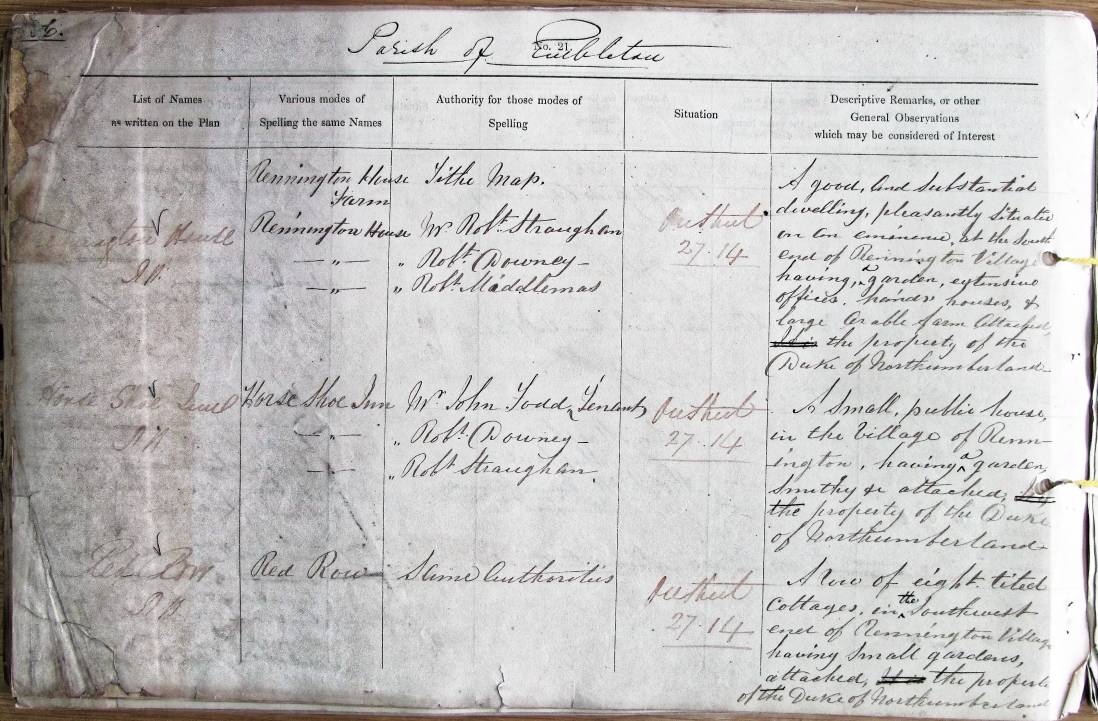 26.
No. 21
Parish of Embleton
List of Names
as written on the Plan
Various modes of
Spelling the same Names
Authority for those modes of
Spelling
Situation
Descriptive Remarks, or other
General Observations
which may be considered of Interest
ington House
Rennington House
Farm
Rennington House
— „ —
— „ —
Tithe Map.
Mr. Robt. Straughan
„ Robt. Downey
„ Robt. Middlemas
On Sheet
27.14
A good, and substantial
dwelling, pleasantly situate
on an eminence, at the South
end of Rennington Village
having a garden, extensive
offices. hands houses, &
large arable farm attached,
It is the property of the
Duke of Northumberland
Horse Shoe
Horse Shoe Inn
— „ —
— „ —
Mr. John Todd, Tenant
„ Robt. Downey
„ Robt. Straughan
On Sheet
27.14
A small, public house,
in the Village of Renn-
ington, having a garden,
Smithy &c attached,
the property of the Duke
of Northumberland
Red Row
Red Row
Same Authorities
On Sheet
27.14
A row of eight tiled
cottages, in the Southwest
end of Rennington Village
having small gardens,
attached, It is the propert
of the Duke of Northumberland